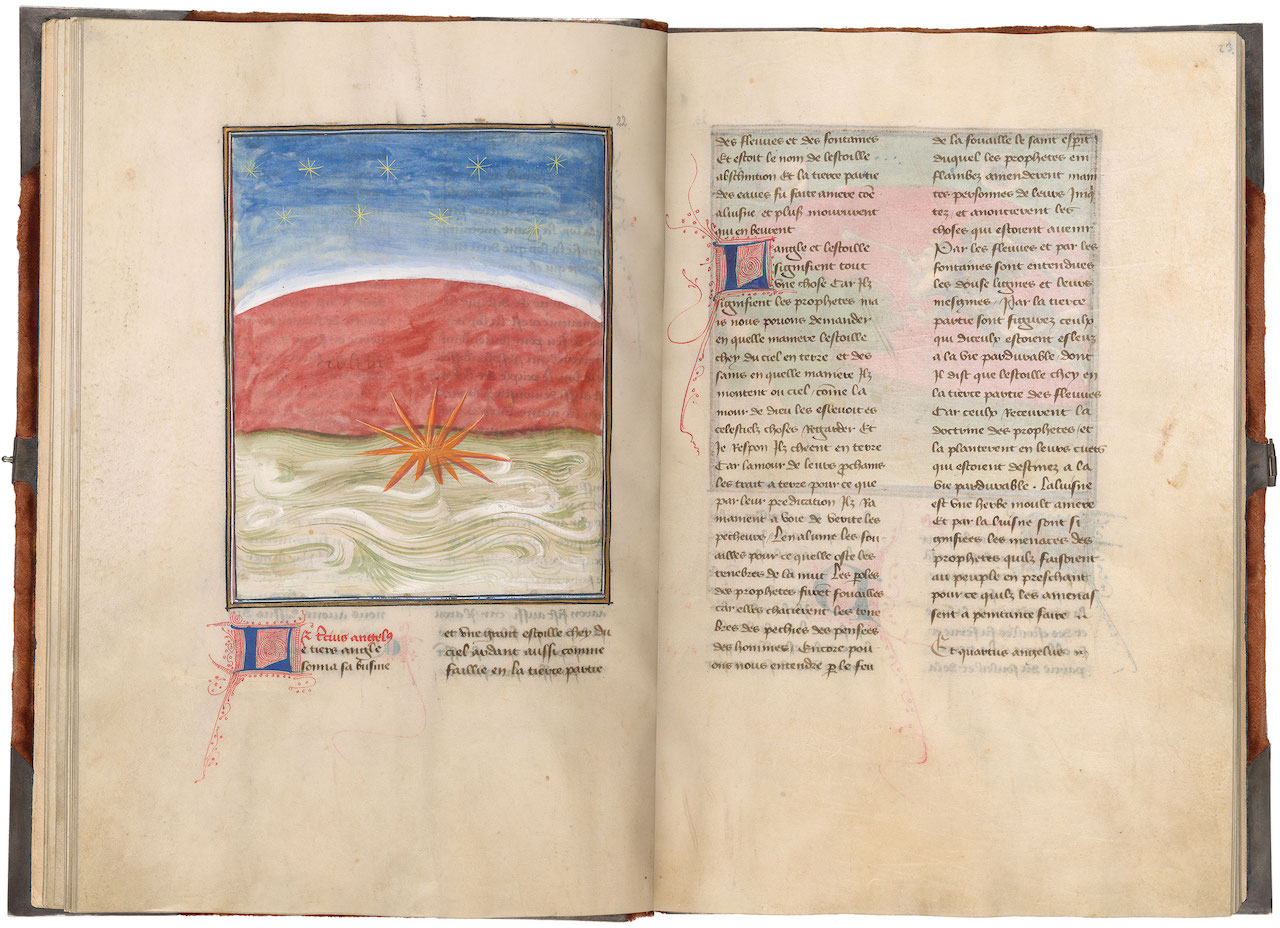 22
Et Tercius angelus
Le tiers angle
sonna sa busine
et une grant estoille chey du
ciel ardant aussi comme
faillie en la tierce partie
23
des fleuves et des fontaines
Et estoit le nom de lestoille
absinction Et la tierce partie
des eaues fu faite amere coe
aluisne et pluss mourrurent
qui en beurent
Langle et lestoille
signifient tout
une chose Car Ilz
signifient les prophetes ma
is nous pouons demander
en quelle maniere lestoille
chey du ciel en terre et des
sains en quelle maniere Ilz
montent ou ciel come la
mour de dieu les eslevoit es
celestielz choses Regarder Et
Je Respon Ilz cheent en terre
Car lamour de leurs prochains
les trait a terre pour ce que
par leur predication Ilz Ra
mainent a voie de verite les
pecheurs Len alume les fou
ailles pour ce quelle oste les
tenebres de la nuit Les poles
des prophetes furet fouailles
car elles chacierent les tene
bres des pechies des pensees
des hommes Encore pou
ons nous entendre p le feu
de la fouaille le saint esprit
duquel les prophetes em
flambez amenderent main
tes personnes de leurs Iniq
tez et anoncierent les
choses qui estoient avenir
Par les fleuves et par les
fontaines sont entendues
les douse lignes et leurs
mesgnies Par la tierce
partie sont figurez ceulx
qui diceulx estoient esleuz
a la vie pardurable dont
Il dist que lestoille chey en
la tierce partie des fleuves
Car ceulx Recevrent la
doctrine des prophetes et
la planterent en leurs cuers
qui estoient destinez a la
vie pardurable . Laluisne
est une herbe moult amere
Et par la luisne sont si
gnifiees les menaces des
prophetes quilz faisoient
au peuple en preschant
pour ce quilz les amenas
sent a penitance faire
Et quartus angelus